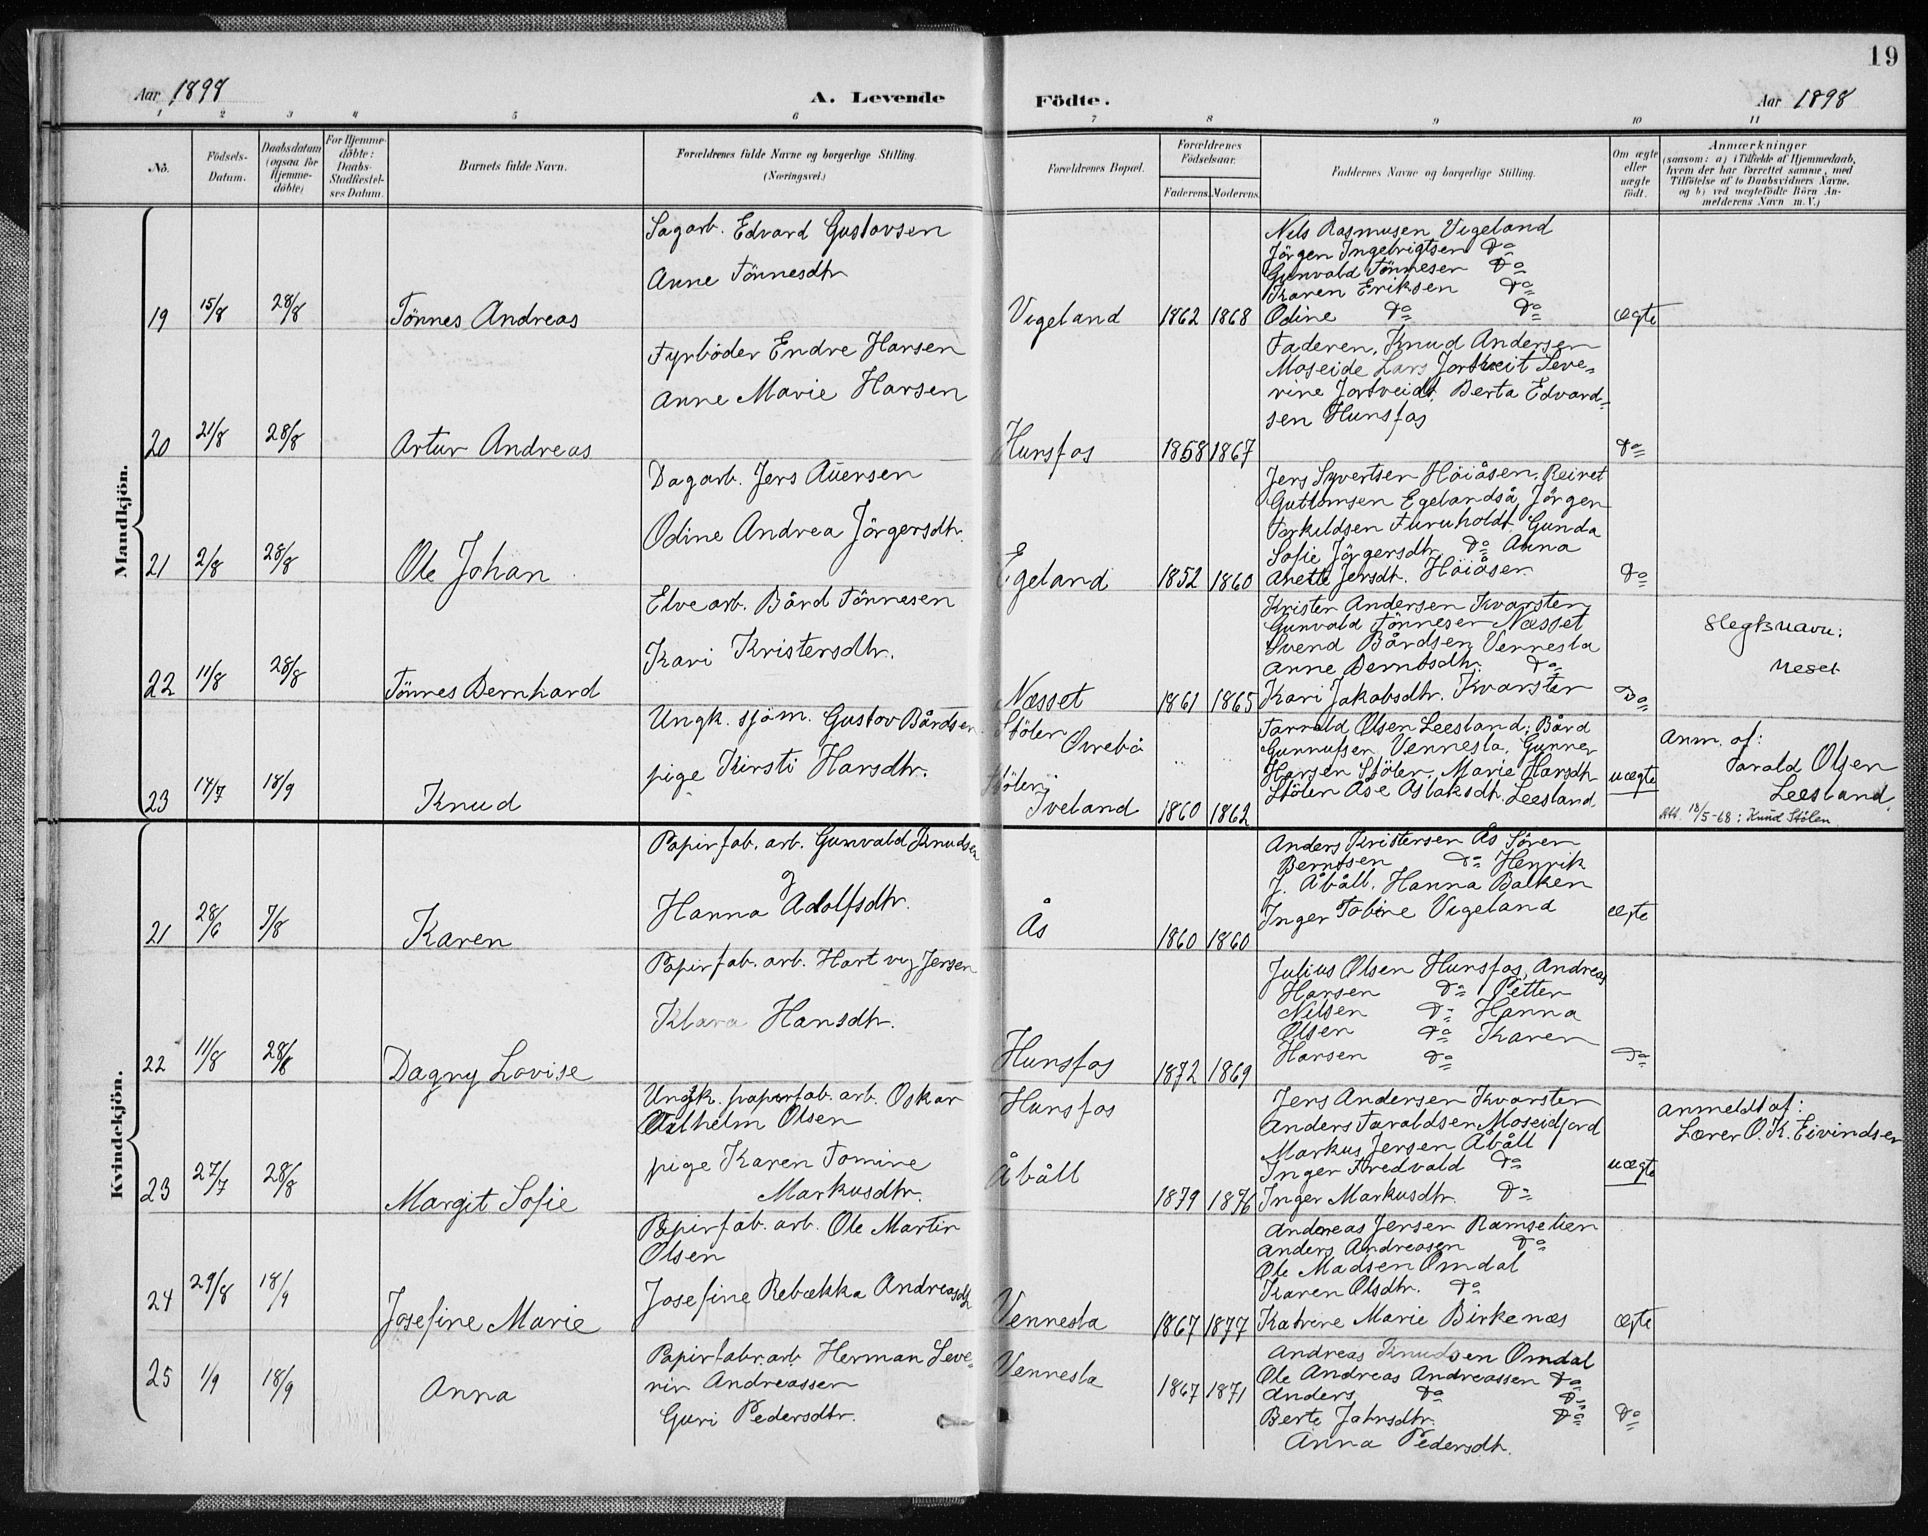 19
Aar 1898
A. Levende
Födte.
Aar 1898
1 2 3 4 5 6 7 8 9 10 11
No.
Födsels-
Datum.
Daabsdatum
(ogsaa for
Hjemme-
döbte)
For Hjemme-
döbte:
Daabs-
Stadfæstel-
ses Datum.
Barnets fulde Navn.
Forældrenes fulde Navne og borgerlige Stilling.
(Næringsvei.)
Forældrenes Bopæl.
Forældrenes
Födselsaar.
Faderens.
Moderens.
Faddernes Navne og borgerlige Stilling.
Om ægte
eller
uægte
födt.
Anmærkninger
(saasom: a) i Tilfælde af Hjemmedaab,
hvem der har forrettet samme, med
Tilföielse af to Daabsvidners Navne,
og b) ved uægtefödte Börn An-
melderens Navn m. V.)
Mandkjön.
19 15/8 28/8 Tönnes Andreas
Sagarb. Edvard Gustavsen
Anne Tönnesdtr
Vigeland 1862 1868
Nils Rasmusen Vigeland
Jörgen Ingebrigtsen Do
Gunvald Tönnesen Do
Karen Eriksen Do
Odine Do Do
ægte
20 21/8 28/8 Artur Andreas
Fyrböder Endre Hansen
Anne Marie Hansen
Hunsfos 1858 1867
Faderen, Knud Andersen
Moseide Lars Jortveit Seve-
rine Jortveidt, Berta Edvard-
sen Hunsfos
Do
21 2/8 28/8 Ole Johan
Dagarb. Jens Auensen
Odine Andrea Jörgensdtr.
Egeland 1852 1860
Jens Syvertsen Höiåsen, Reinet
Guttomsen Egelandså, Jörgen
Torkildsen Furuholdt Gunda
Sofie Jörgensdtr. Do Anna
Anette Jensdt. Höiåsen
Do
22 11/8 28/8 Tönnes Bernhard
Elvearb. Bård Tönnesen
Kari Kristensdtr.
Næsset 1861 1865
Kristen Andersen Kvarsten
Gunvald Tönnesen Næsset
Svend Bårdsen Vennesla
Anne Berntsdtr. Do
Kari Jakobsdtr. Kvarsten
Do
Slegtsnavn:
Neset
23 14/7 18/9 Knud
Ungk. sjöm. Gustav Bårdsen
pige Kirsti Hansdtr.
Stölen Övrebö
Stölen, Iveland 1860 1862
Tarald Olsen Leesland, Bård
Gunnufsen Vennesla, Gunner
Hansen Stölen, Marie Hansdtr
Stölen Åse Aslaksdt. Leesland
uægte
Anm. af:
Tarald Olsen
Leesland.
Att. 18/5-68: Knud Stölen.
Kvindekjön.
21 28/6 7/8 Karen
Papirfab. arb. Gunvald Knudsen
og
Hanna Adolfsdtr.
Ås 1860 1860
Anders Kristensen Ås Sören
Berntsen Do Henrik
J. Åbåll, Hanna Balken
Inger Tobine Vigeland
ægte
22 11/8 28/8 Dagny Lovise
Papirfab. arb. Hartvig Jensen
Klara Hansdtr.
Hunsfos 1872 1869
Julius Olsen Hunsfos, Andreas
Hansen Do Petter
Nilsen Do Hanna
Olsen Do Karen
Hansen Do
Do
23 27/7 28/8 Margit Sofie
Ungk. papirfab. arb. Oskar
Wilhelm Olsen
pige Karen Tomine
Markusdtr.
Hunsfos
Åbåll 1879 1876
Jens Andersen Kvarsten
Anders Taraldsen Moseidjord
Markus Jensen Åbåll
Inger Fredvald Do
Inger Markusdtr. Do
uægte
Anmeldt af:
Lærer O. K. Eivindsen
24 29/8 18/9 Josefine Marie
Papirfab. arb. Ole Martin
Olsen
Josefine Rebækka Andreasdtr
Vennesla 1867 1877
Andreas Jensen Ramselien
Anders Andreasen Do
Ole Madsen Omdal
Karen Olsdtr. Do
Katrine Marie Birkenæs
ægte
25 1/9 18/9 Anna
Papirfabr. arb. Herman Seve-
rin Andreassen
Guri Pedersdtr.
Vennesla 1867 1871
Andreas Knudsen Omdal
Ole Andreas Andreassen Do
Anders Do Do
Berte Jahnsdtr. Do
Anna Pedersdt.
Do